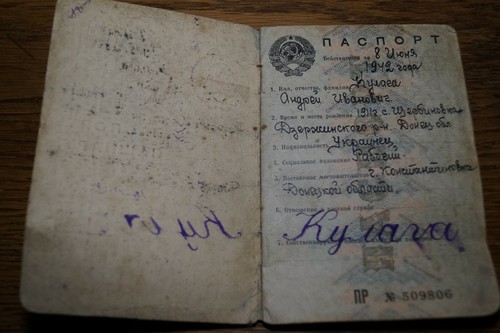 ПАСПОРТ
Действителен по 8 Июня
1942 года
1. Имя, отчество, фамилия Кулага
Андрей Иванович
2. Время и место рождения 1918 с. Щербиновка
Дзержинского р-н. Донец. обл
3. Национальность Украинец
4. Социальное положение Рабочий
5. Постоянное местожительство г. Константиновка
Донецкой области
6. Отношение к военной службе
7.
Кулага
ПР № 509806